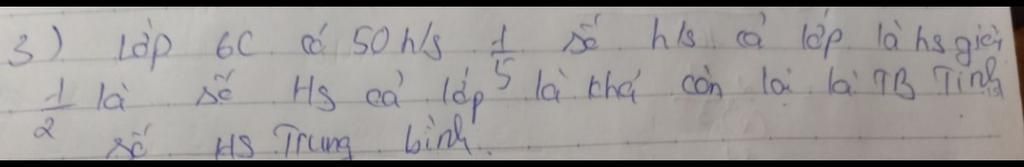 3) Lớp 6C có 50 h/s 1/5 số h/s cả lớp là hs giỏi
1/2 là số HS cả lớp là khá còn lại là TB Tính
số HS Trung bình.